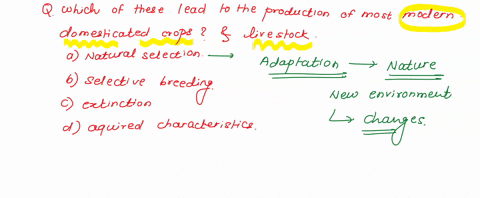 Q. Which of these lead to the production of most modern
domesticated crops? & livestock.
a) Natural selection → Adaptation → Nature
b) Selective breeding. New environment
c) extinction ↳ changes.
d) aquired characteristics.